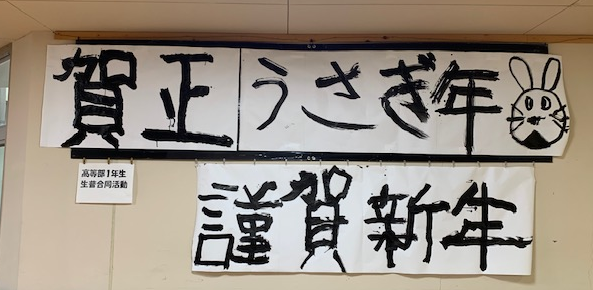 賀正うさぎ年
高等部1年生
生普合同活動
謹賀新年